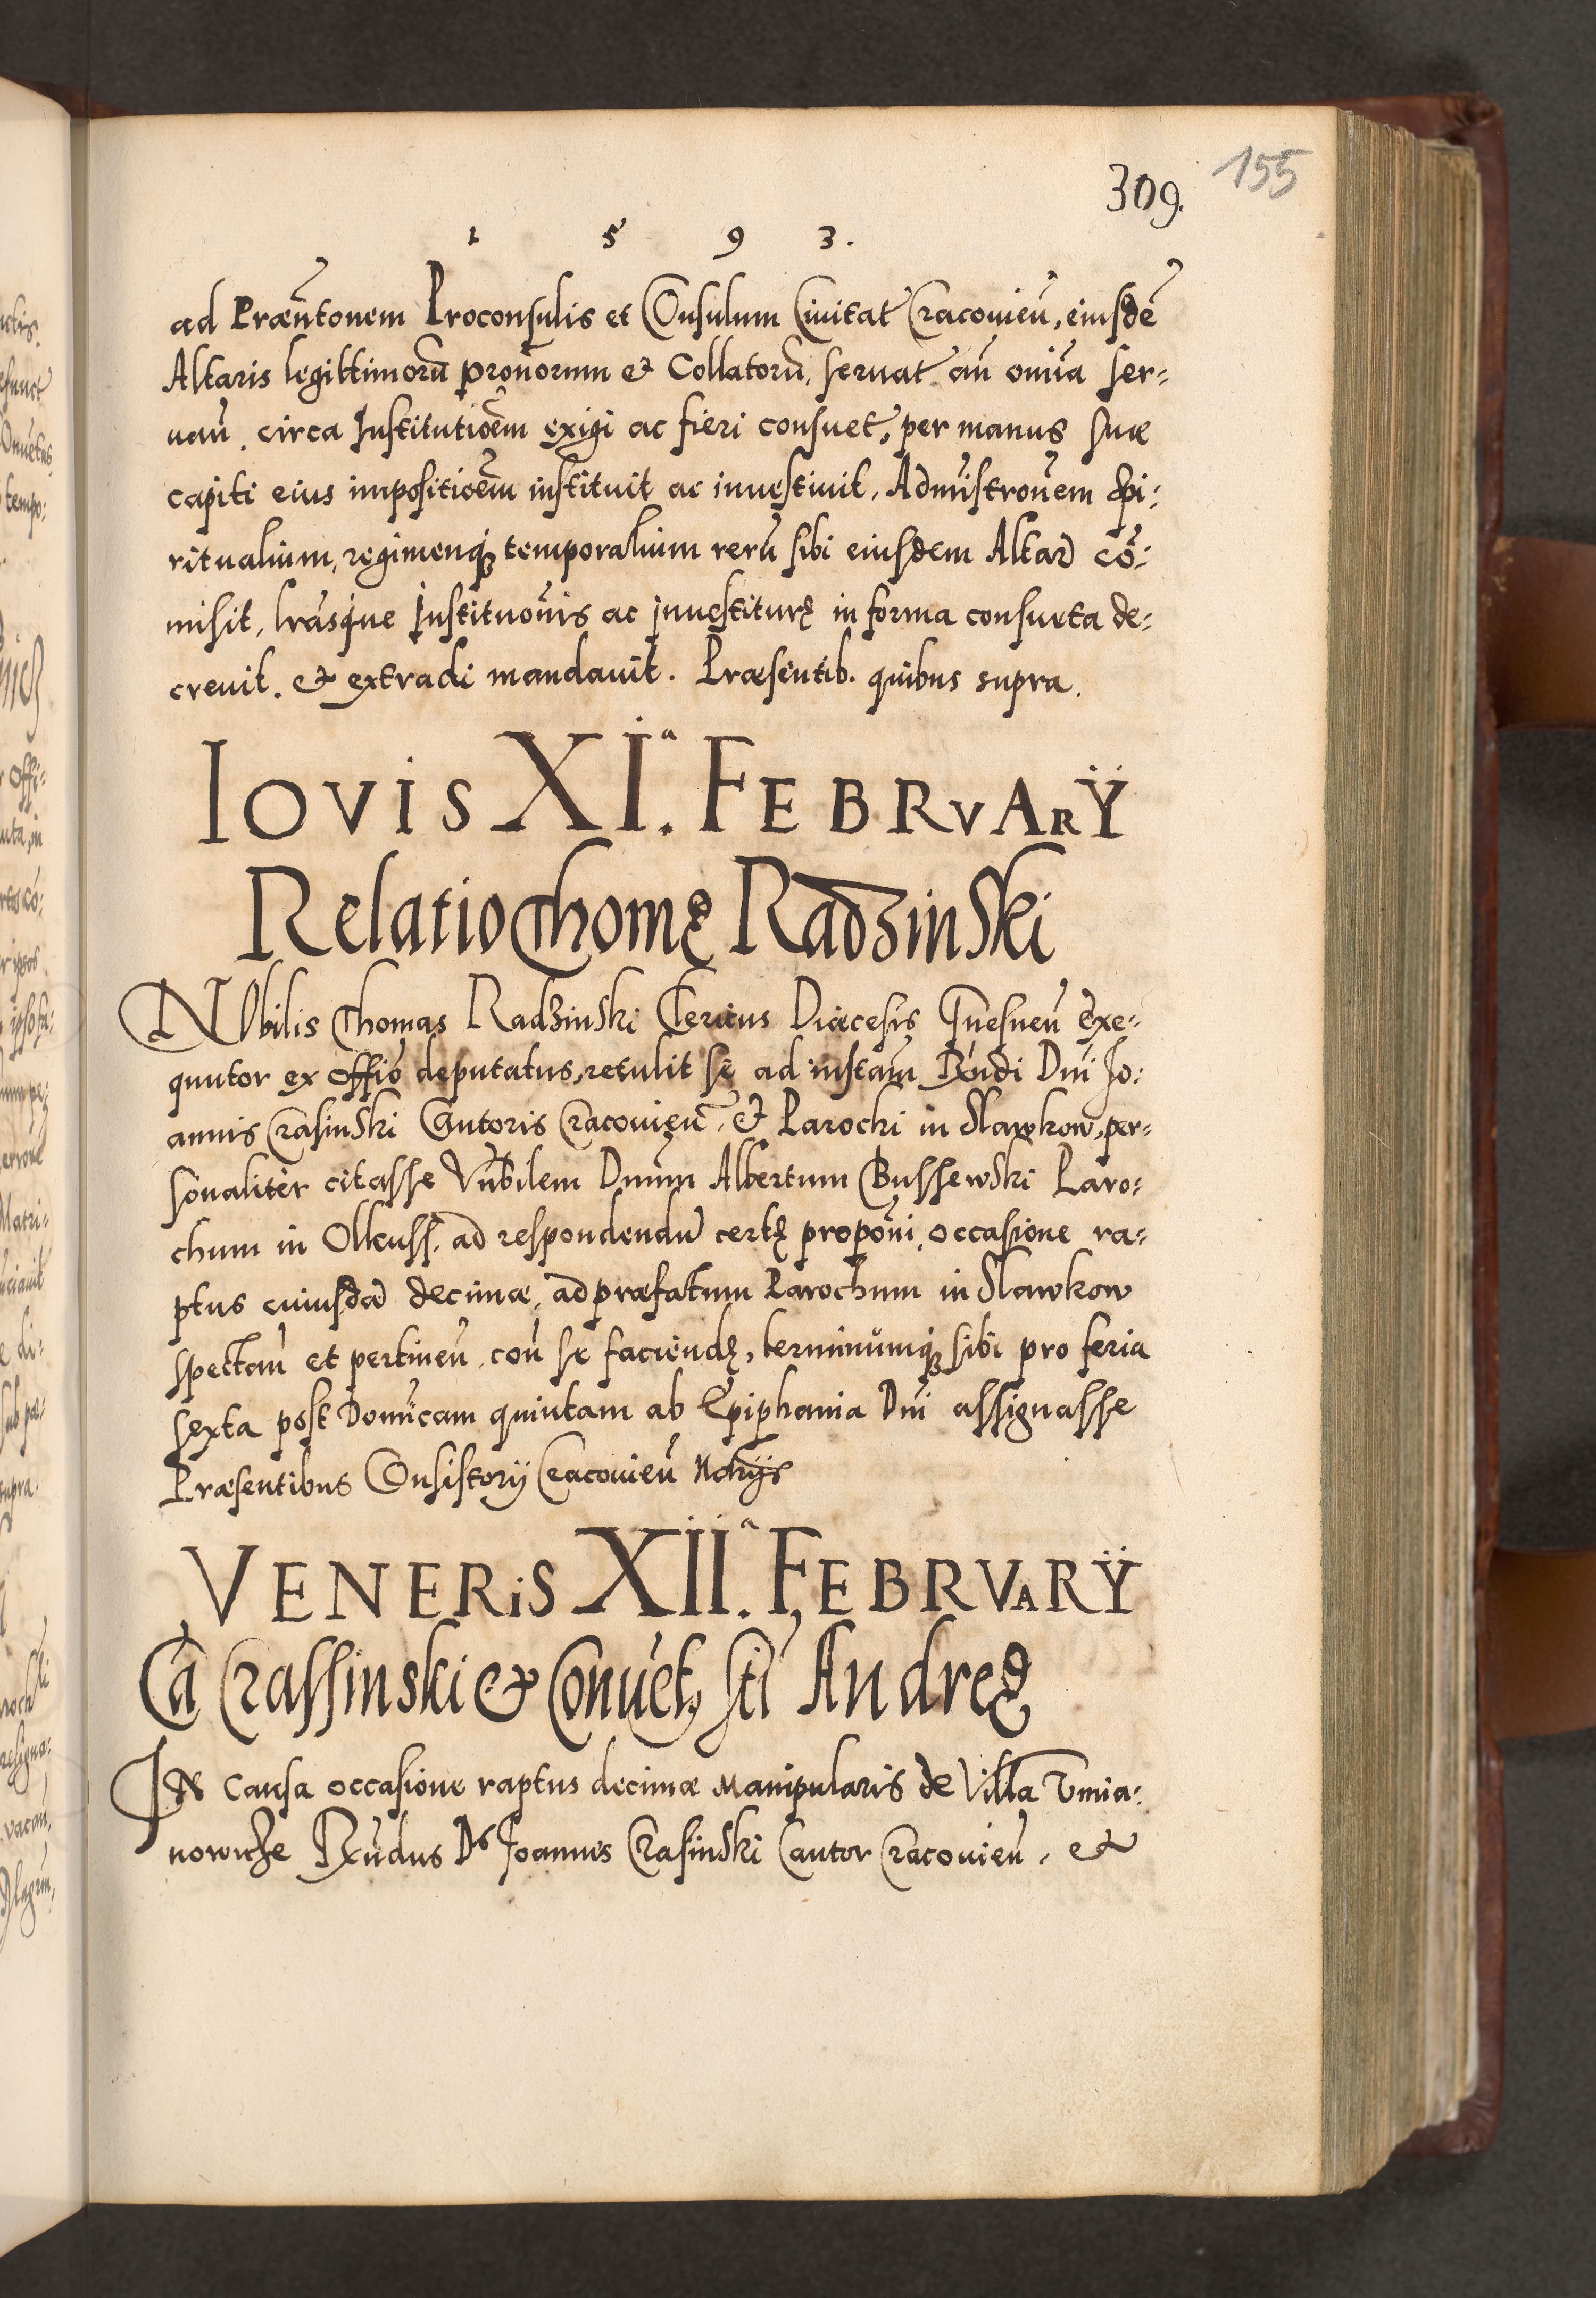 309. 155
1 5 9 3.
ad Præñtonem Proconsulis et Consulum Ciuitat Cracouieñ, eiusdē
Altaris legittimorū proñorum et Collatorū, seruat añ omīa ser-
uañ, circa Institutioēm exigi ac fieri consuet, per manus suæ
capiti eius impositioēm instituit ac inuestiuit, Admīstroñem spi-
ritualium, regimenq́ꝫ temporalium rerū sibi eiusdem Altar cō-
misit, lrāsque Instituoñis ac inuestiturę in forma consueta de-
creuit, et extradi mandauit. Præsentib. quibus supra.
IOVIS XI.ª FEBRVARŸ
Relatio Thomę Radzinski
NObilis Thomas Radzinski Clericus Diœcesis Gnesneñ Exe-
quutor ex offīo deputatus, retulit se ad instañ Rñdi Dñi Jo-
annis Crasinski Cantoris Cracouieñ, et Parochi in Slawkow, per-
sonaliter citasse Vñbilem Dñum Albertum Bussewski Paro-
chum in Olkuss, ad respondendū certę propoñi, occasione ra-
ptus cuiusdā decimæ, ad præfatum Parochum in Slawkow
spectañ et pertineñ, coñ se faciendę, terminumq́ꝫ sibi pro feria
sexta post Domīcam quintam ab Epiphania Dñi assignasse
Præsentibus Consistorij Cracouieñ Notrijs
VENERIS XII.ª FEBRVARŸ
Cā Crassinski et Conuēt, Sti Andreę
IN causa occasione raptus decimæ Manipularis de Villa Vmia-
nowicze Rñdus Ds Joannes Crasinski Cantor Cracouieñ, et